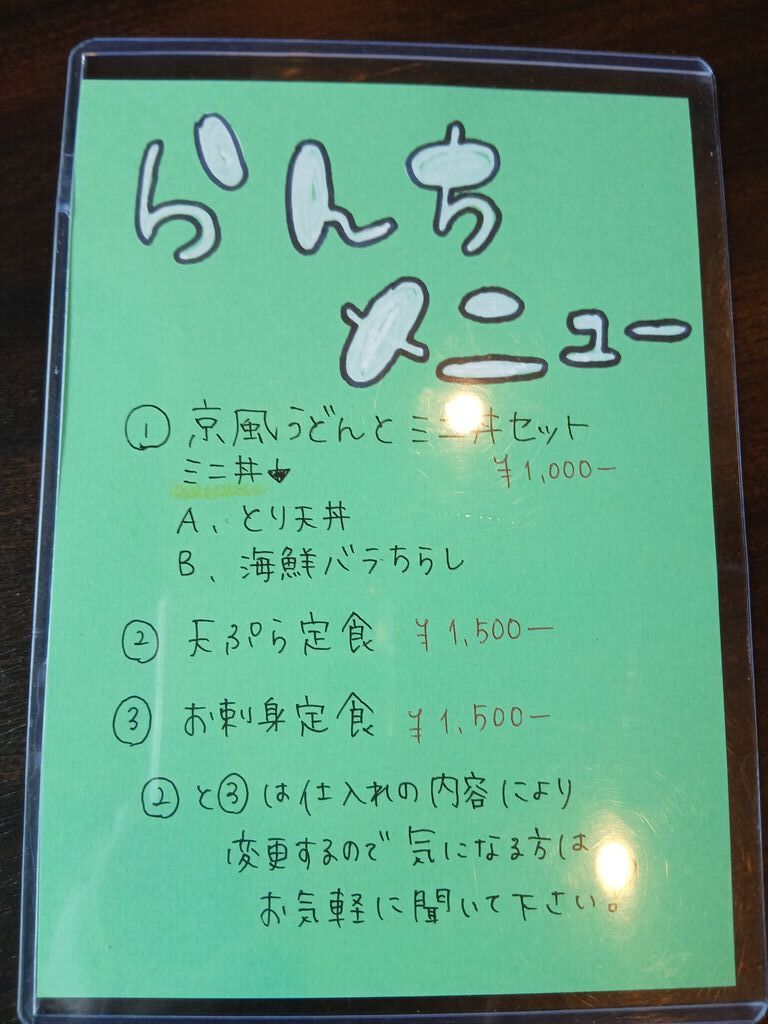 らんち
メニュー
① 京風うどんとミニ丼セット
ミニ丼↓ ¥1,000ー
A、とり天丼
B、海鮮バラちらし
② 天ぷら定食 ¥1,500ー
③ お刺身定食 ¥1,500ー
②と③は仕入れの内容により
変更するので気になる方は
お気軽に聞いて下さい。